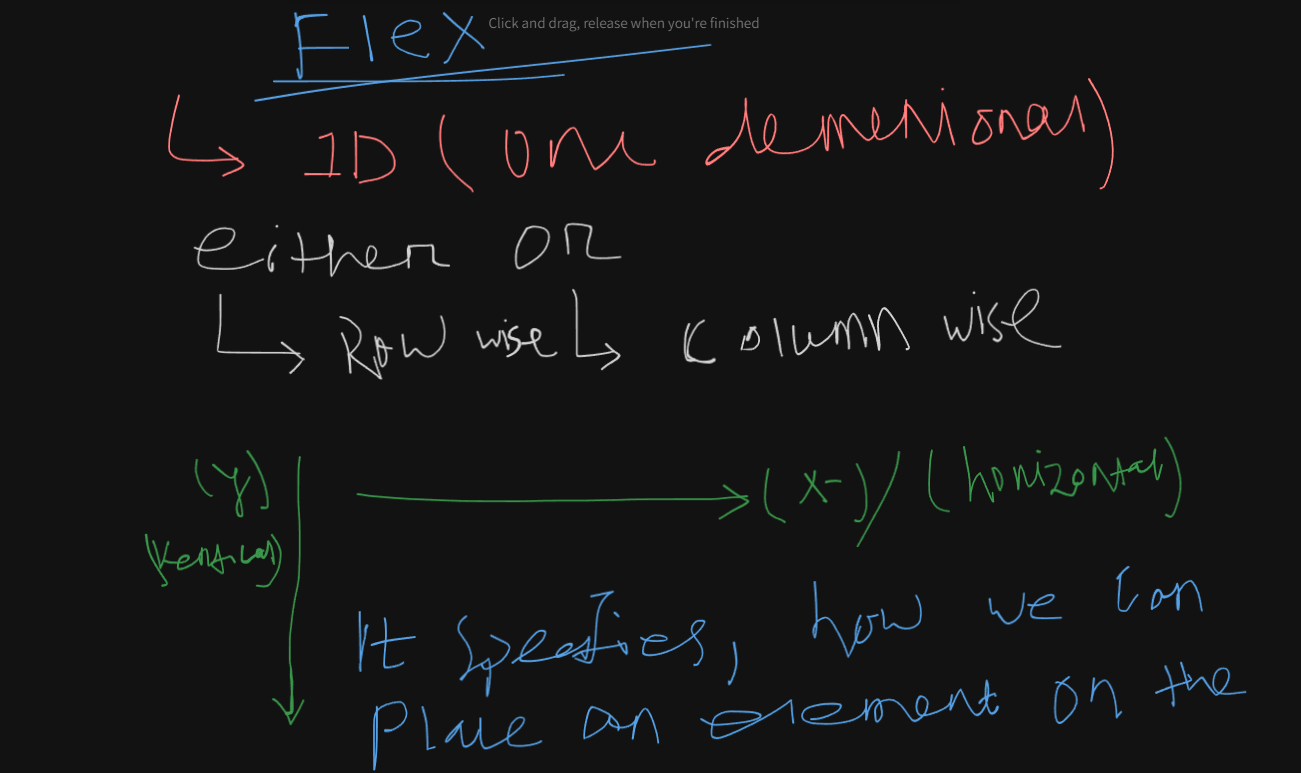 Click and drag, release when you're finished
Flex
1D (one demensional)
either or
Row wise Column wise
(y) (x-)/(horizontal)
(vertical)
It specifies, how we can
place an element on the